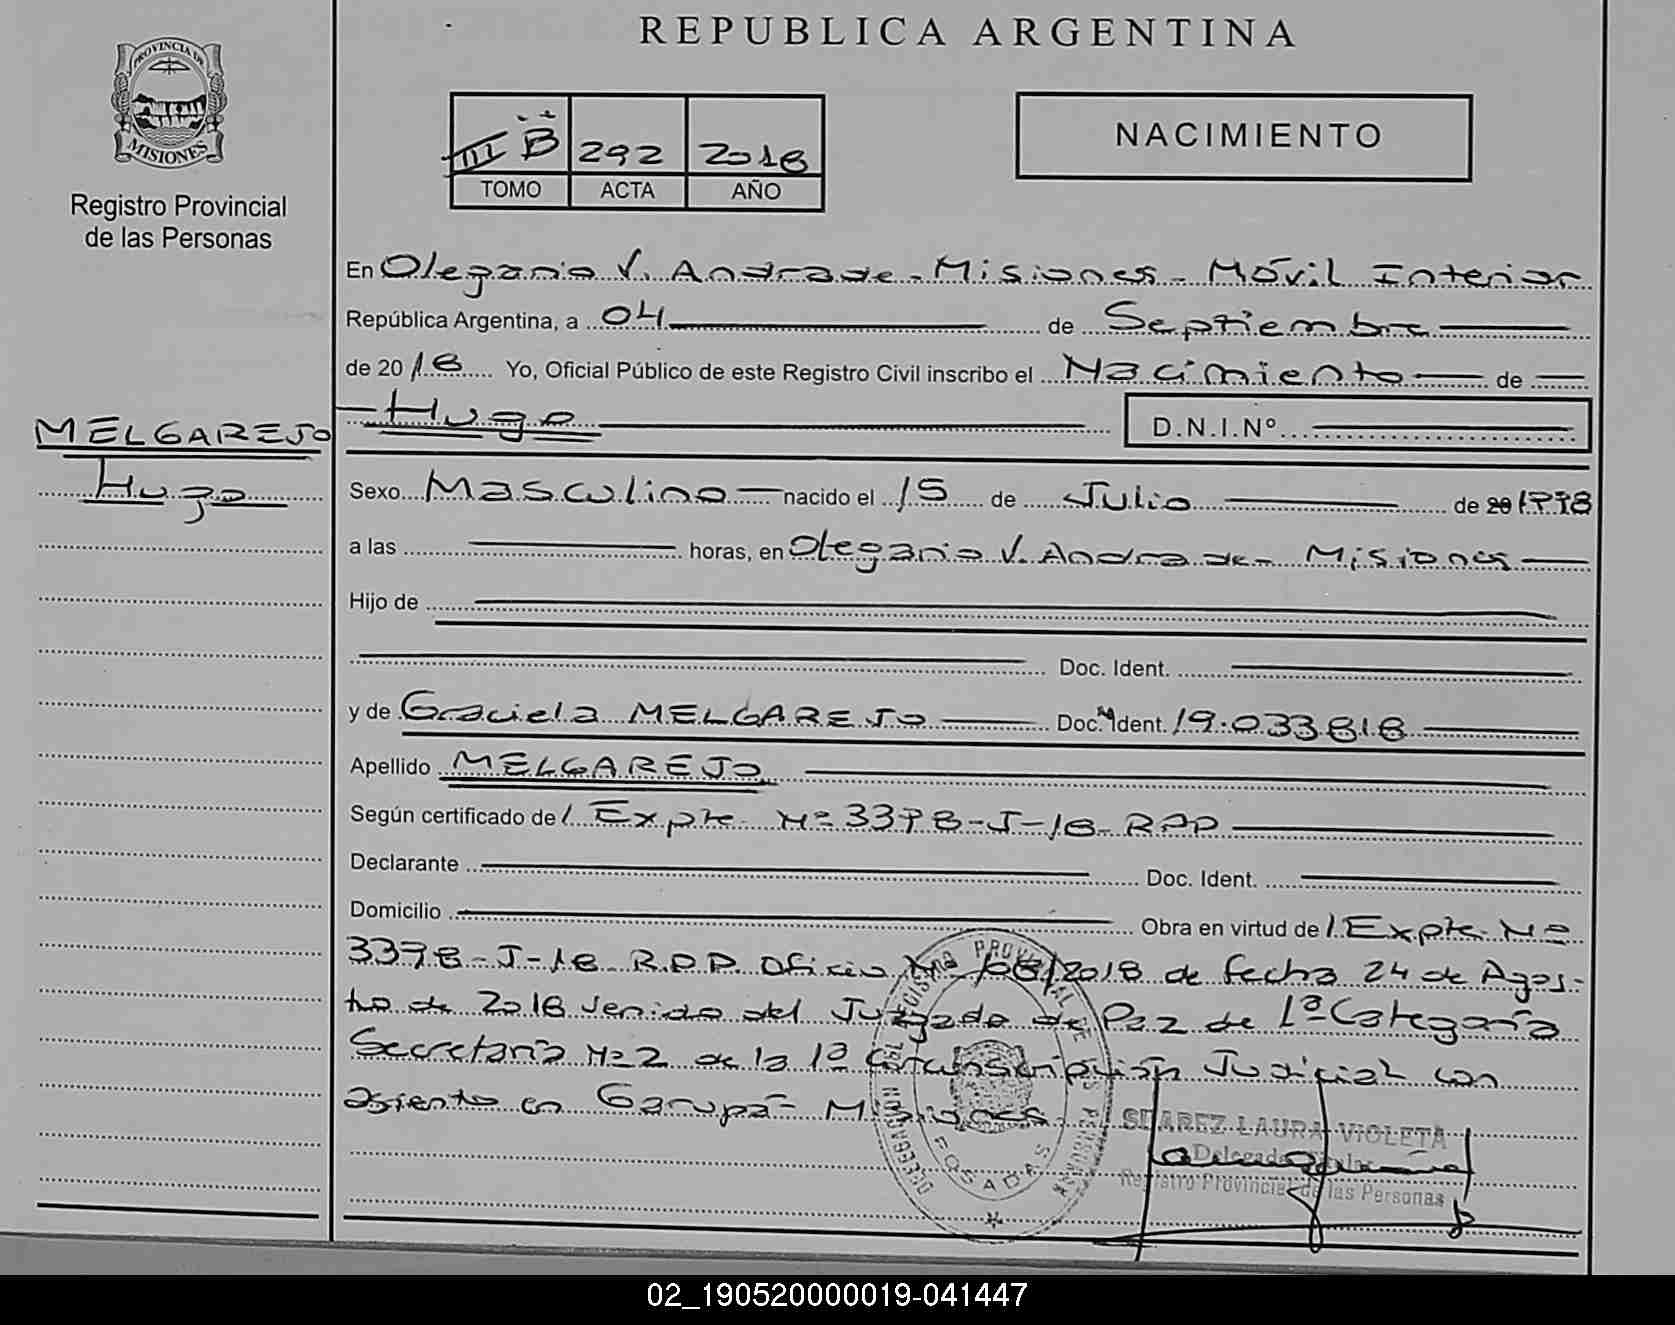 REPUBLICA ARGENTINA
PROVINCIA DE
MISIONES
Registro Provincial
de las Personas
III B 292 2018
TOMO ACTA AÑO
NACIMIENTO
En Olegario V. Andrade - Misiones - Móvil Interior
República Argentina, a 04 de Septiembre
de 2018 Yo, Oficial Público de este Registro Civil inscribo el Nacimiento de
Hugo D.N.I.Nº
MELGAREJO
Hugo
Sexo Masculino nacido el 15 de Julio de 20 1998
a las horas, en Olegario V. Andrade - Misiones
Hijo de
Doc. Ident.
y de Graciela MELGAREJO Doc. Ident. 19.033.818
Apellido MELGAREJO
Según certificado de / Expte Nº 3398-J-18 RPP
Declarante Doc. Ident.
Domicilio Obra en virtud de / Expte Nº
3398-J-18 R.P.P. Oficio Nº 108/2018 de fecha 24 de Agos-
to de 2018 venido del Juzgado de Paz de 1ª Categoría
Secretaría Nº 2 de la 1ª Circunscripción Judicial con
asiento en Garupá - Misiones
SUAREZ LAURA VIOLETA
Delegada Titular
Registro Provincial de las Personas
POSADAS
02_190520000019-041447